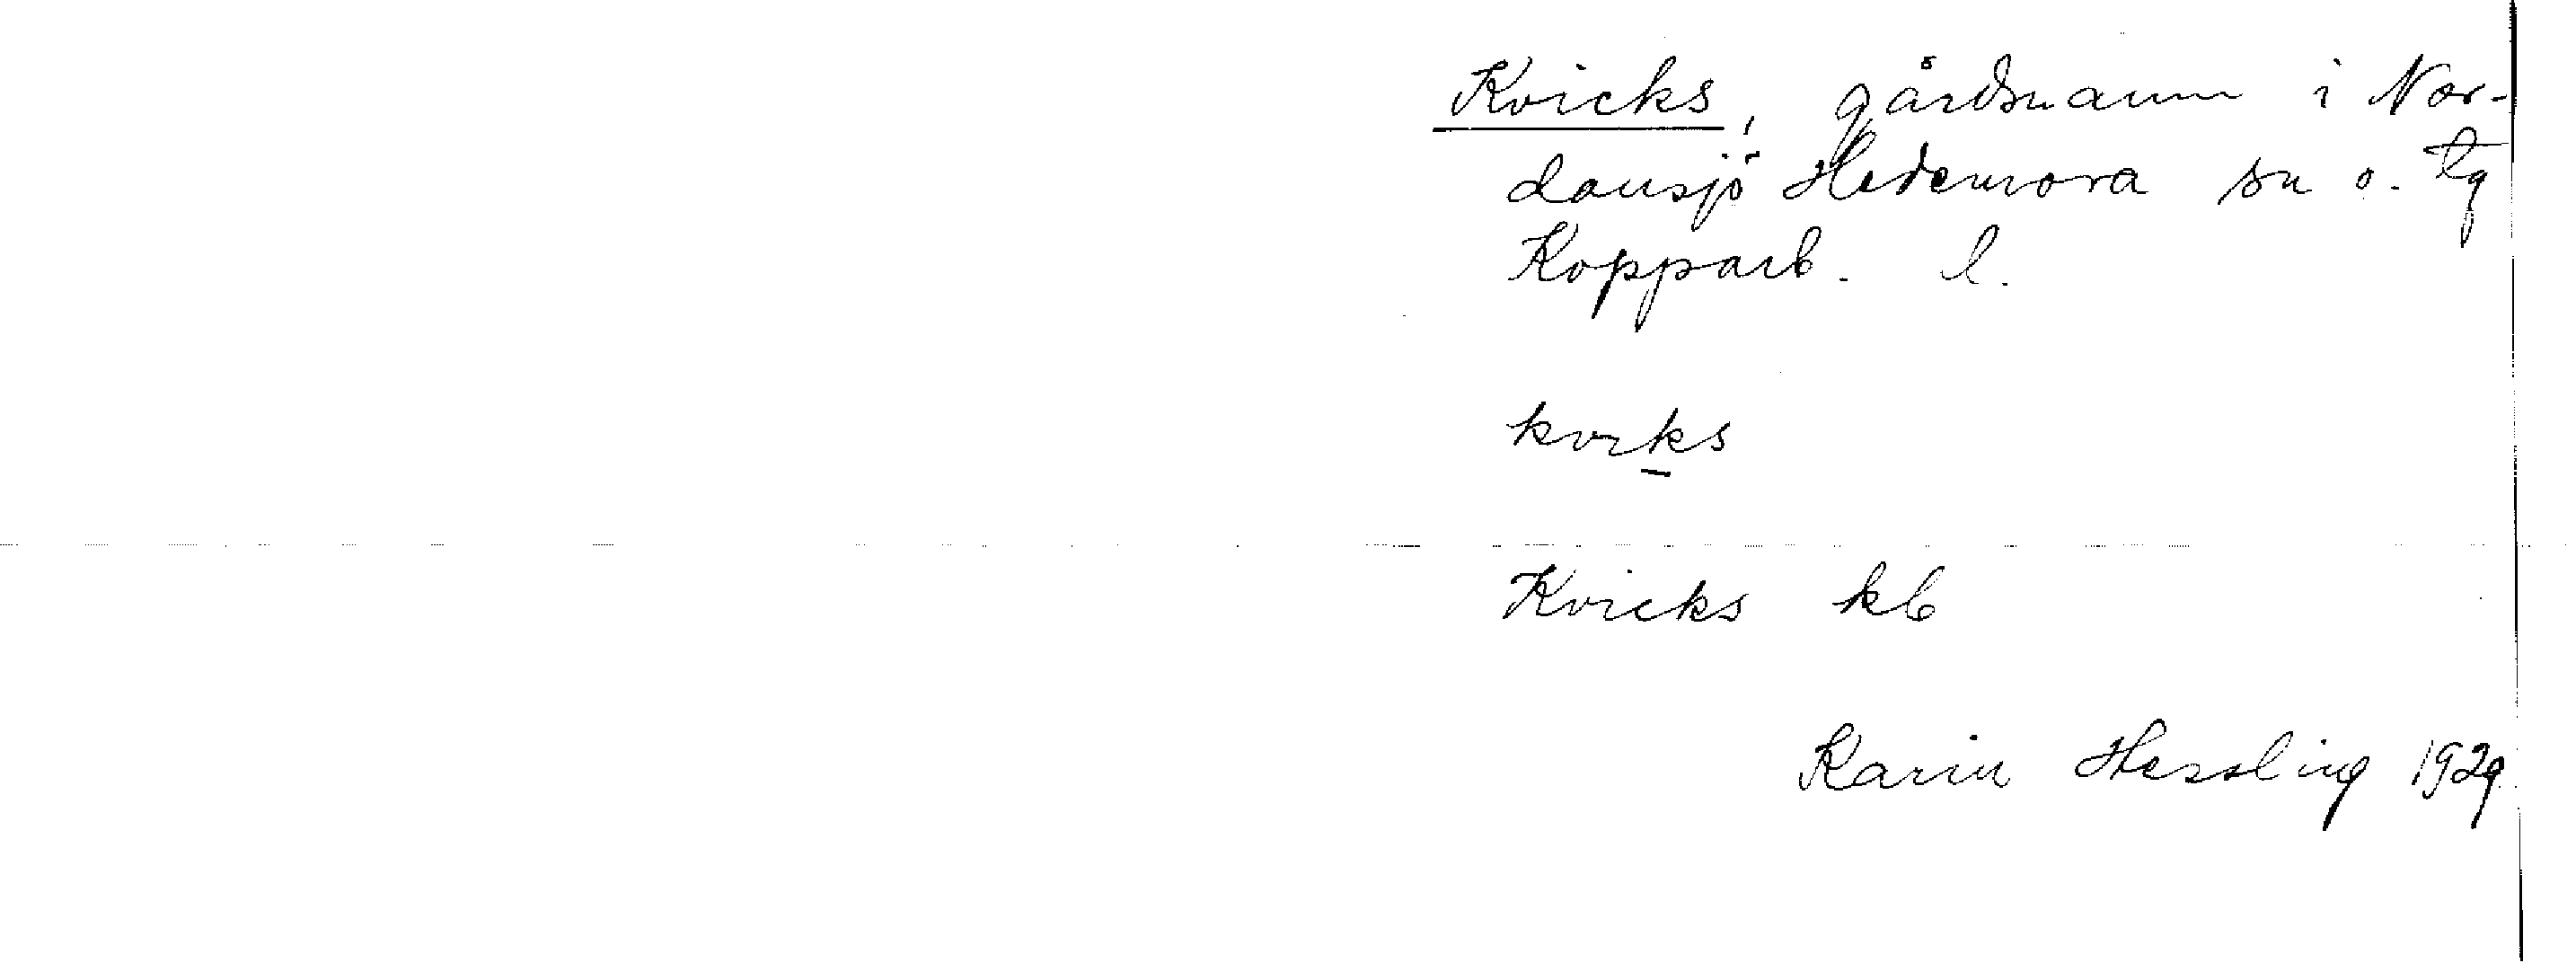 Kvicks, gårdsnamn i Nor-
dansjö Hedemora sn o. tg
Kopparb. l.
kvıks
Kvicks kb
Karin Hessling 1929.